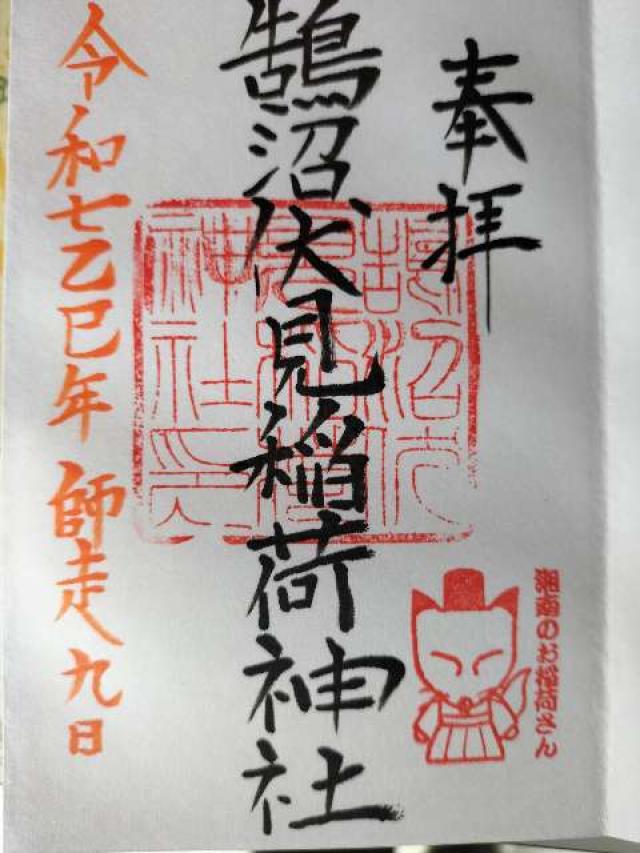 奉拝
鵠沼伏見稲荷神社
令和七乙巳年 師走九日
鵠沼伏
見稲荷
神社印
湘南のお稲荷さん